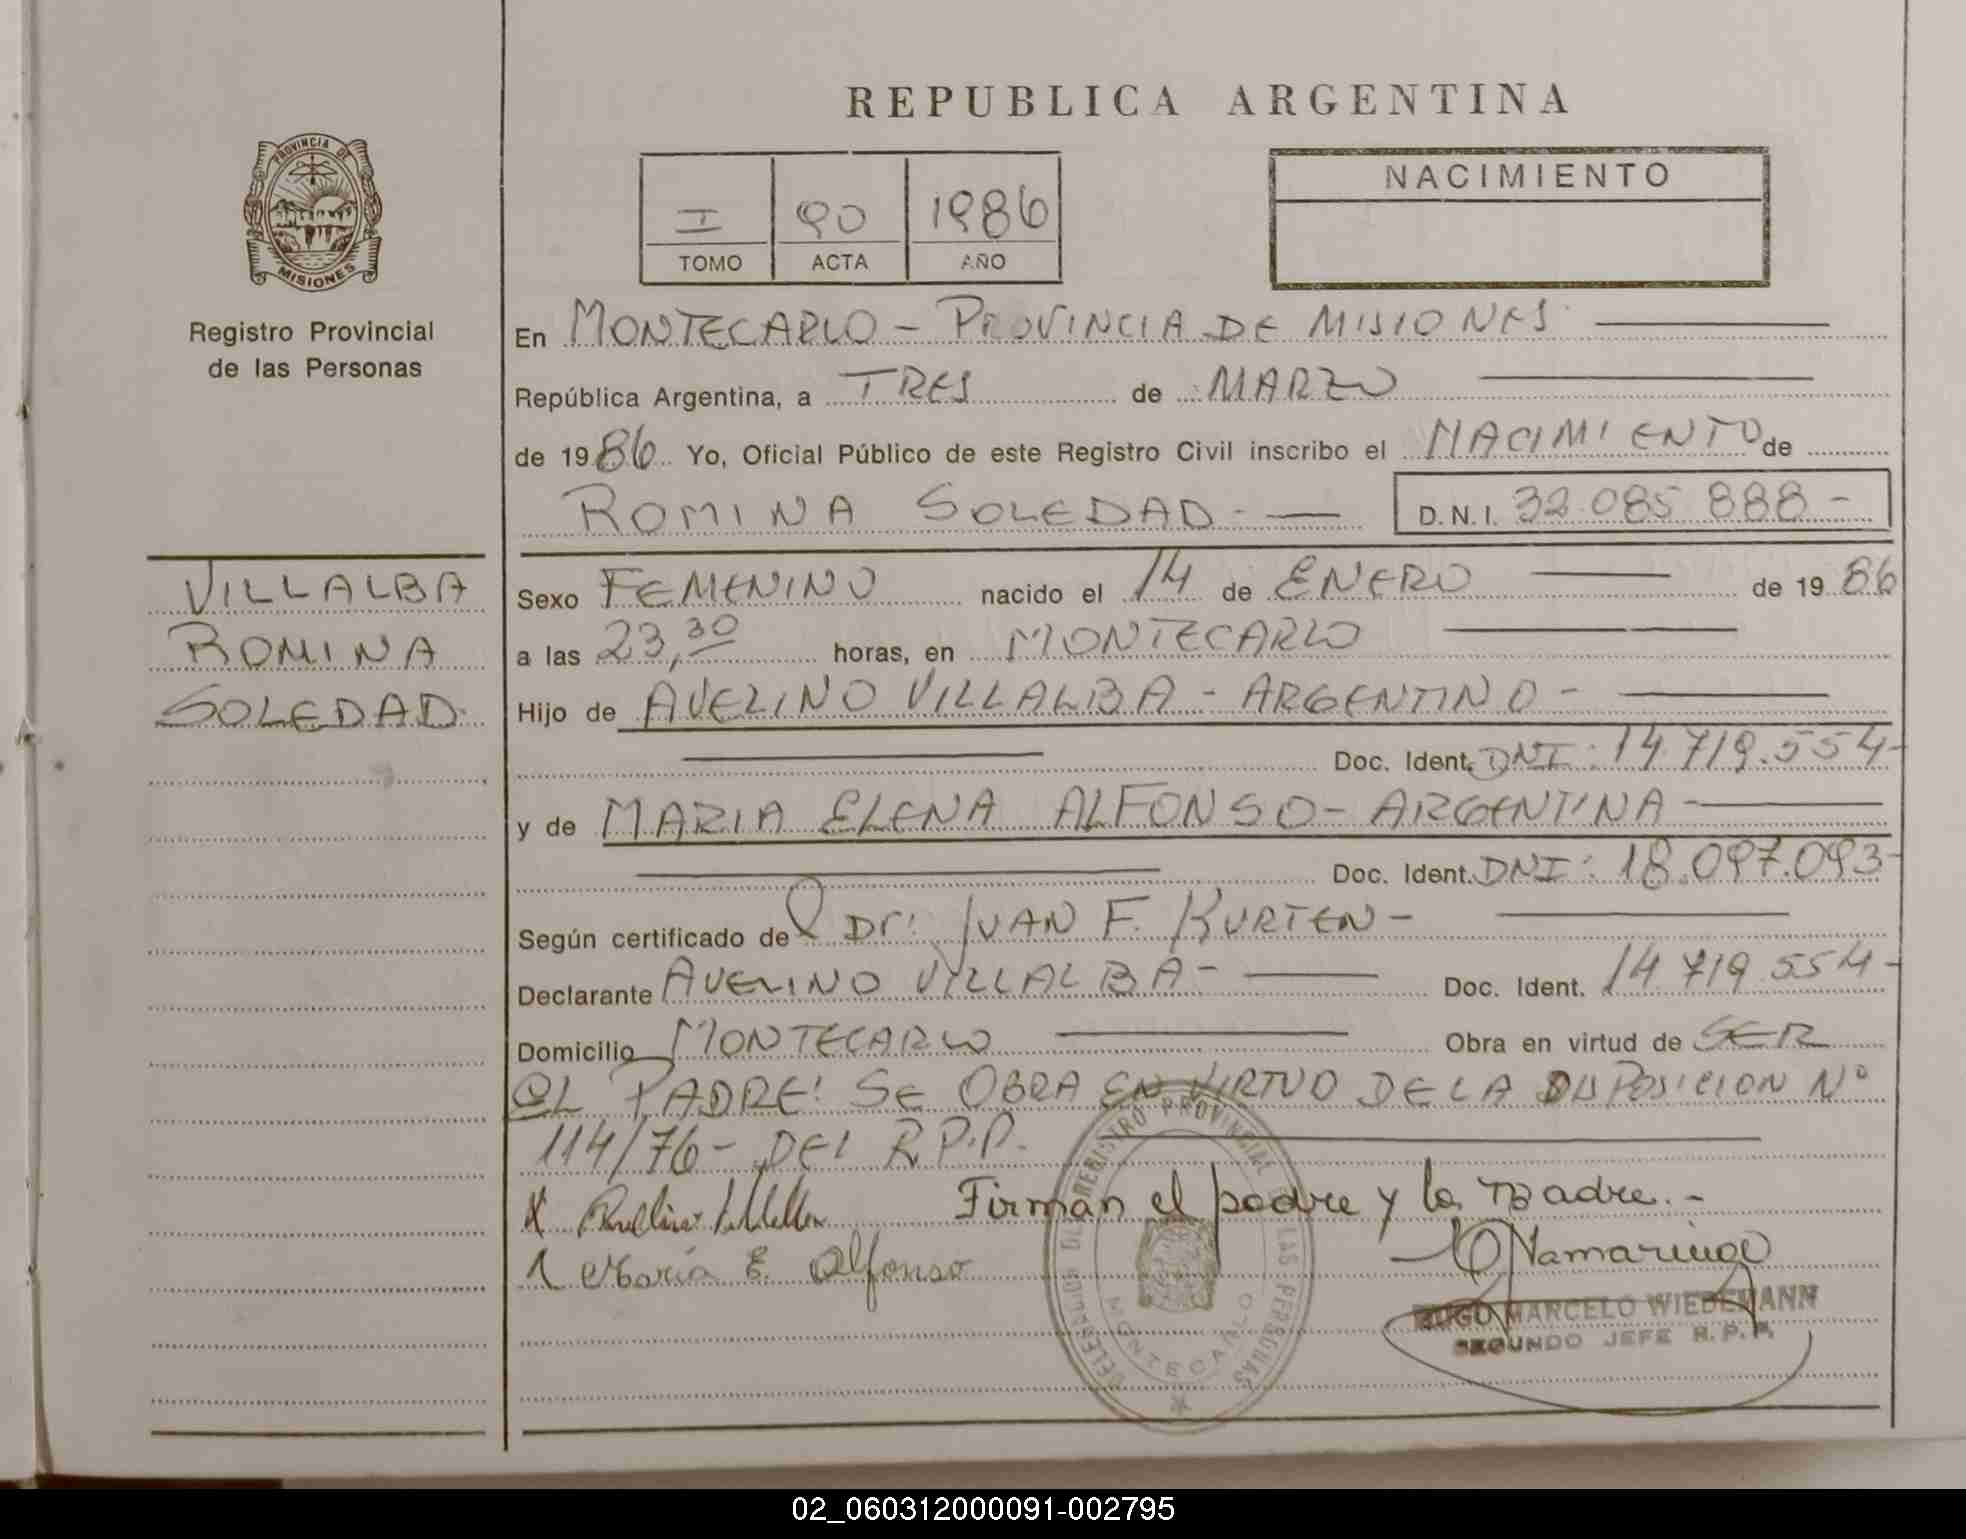 REPUBLICA ARGENTINA
PROVINCIA DE
MISIONES
Registro Provincial
de las Personas
I 90 1986
TOMO ACTA AÑO
NACIMIENTO
En MONTECARLO - PROVINCIA DE MISIONES
República Argentina, a TRES de MARZO
de 1986 Yo, Oficial Público de este Registro Civil inscribo el NACIMIENTO de
ROMINA SOLEDAD - D.N.I. 32.085 888 -
VILLALBA
ROMINA
SOLEDAD
Sexo FEMENINO nacido el 14 de ENERO de 1986
a las 23,30 horas, en MONTECARLO
Hijo de AVELINO VILLALBA - ARGENTINO -
Doc. Ident. DNI: 14.719.554-
y de MARIA ELENA ALFONSO - ARGENTINA -
Doc. Ident. DNI: 18.097.093-
Según certificado de Dr. JUAN F. KURTEN -
Declarante AVELINO VILLALBA - Doc. Ident. 14.719.554-
Domicilio MONTECARLO Obra en virtud de SER
EL PADRE! SE OBRA EN VIRTUD DE LA DISPOSICION Nº
114/76 - DEL R.P.P.
Firman el padre y la madre.-
Maria E. Alfonso
HUGO MARCELO WIEDEMANN
SEGUNDO JEFE R.P.P.
REGISTRO PROVINCIAL DE LAS PERSONAS
MONTECARLO
02_060312000091-002795